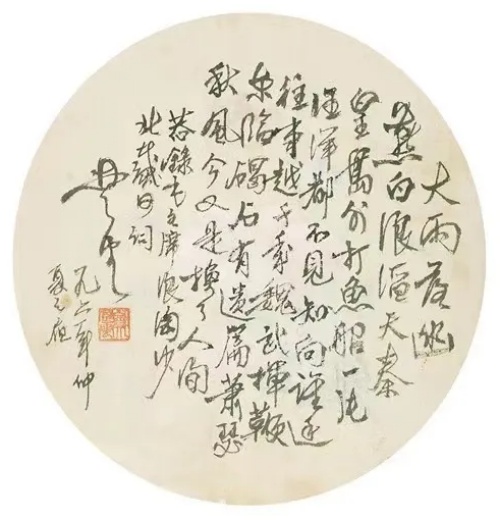 大雨落幽
燕白浪滔天秦
皇島外打魚船一片
汪洋都不見知向誰邊
往事越千年魏武揮鞭
东临碣石有遺篇萧瑟
秋風今又是換了人间
恭錄毛主席浪淘沙
北戴河词
九六年仲
夏